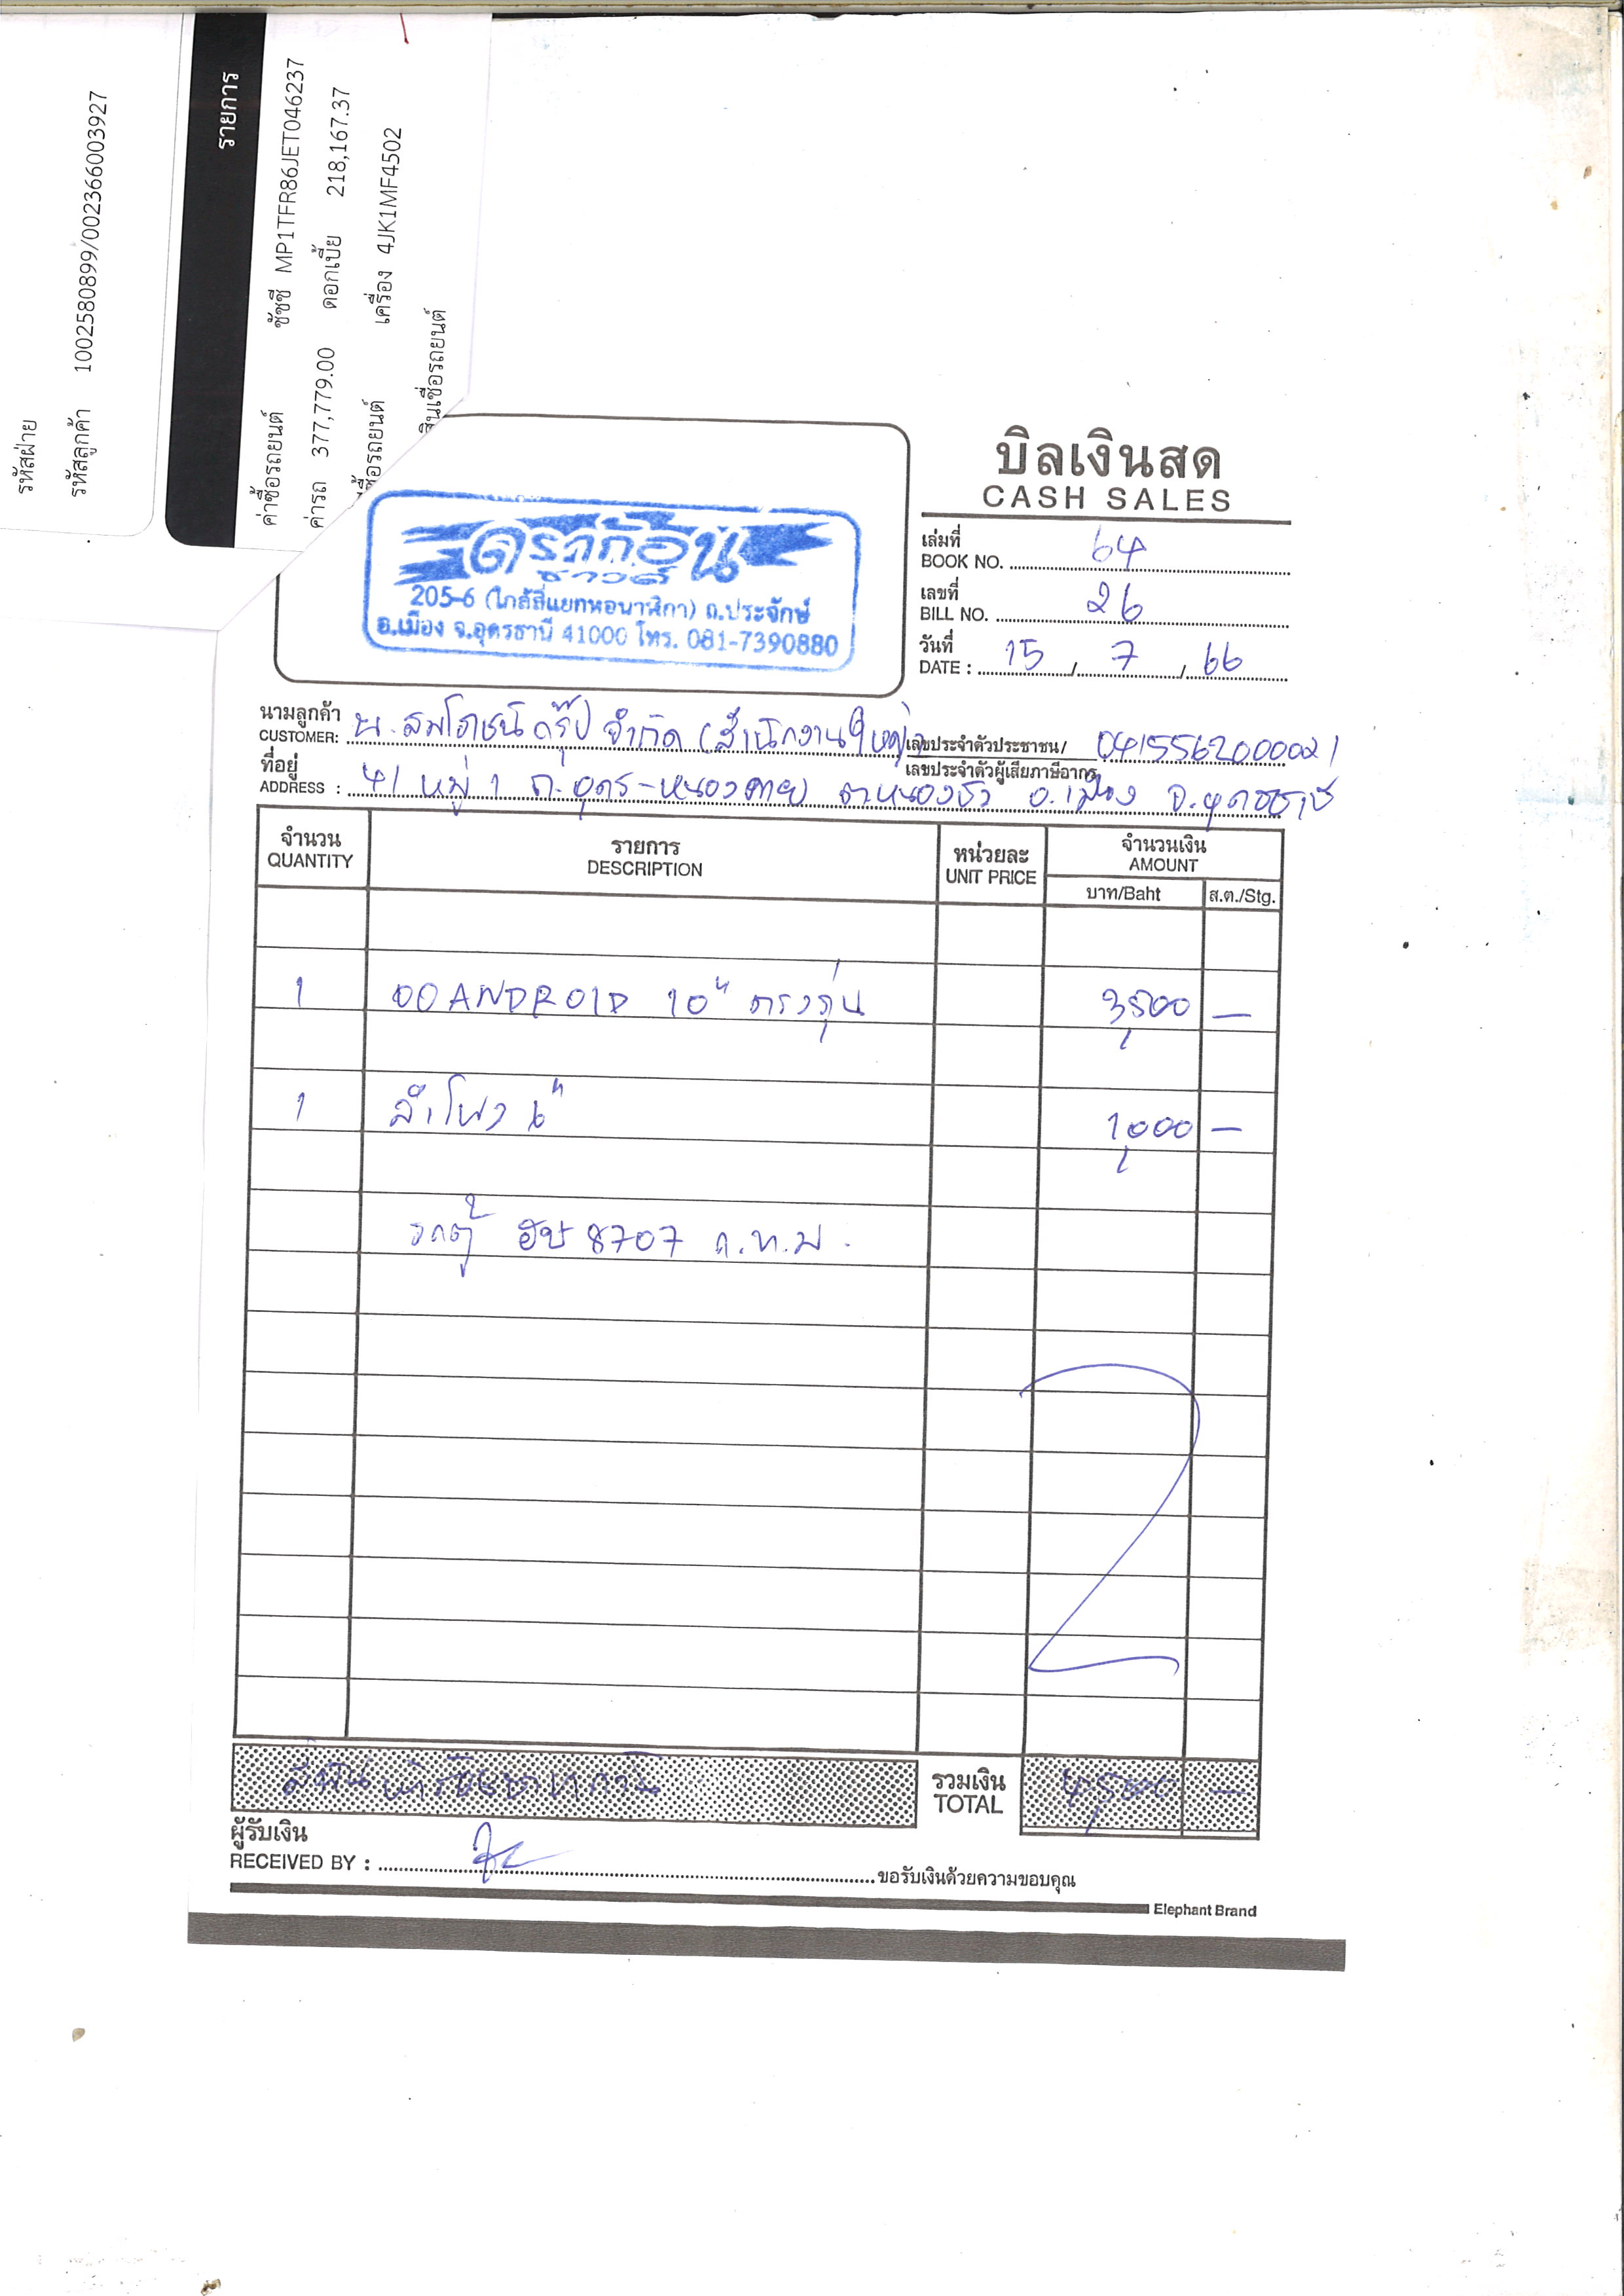 รหัสฝ่าย
รหัสลูกค้า 1002580899/002366003927
รายการ
ค่าซื้อรถยนต์ ชัชซี MP1TFR86JET046237
ค่ารถ 377,779.00 ดอกเบี้ย 218,167.37
ซื้อรถยนต์ เครื่อง 4JK1MF4502
สินเชื่อรถยนต์
ดราก้อน
ซาวด์
205-6 (ใกล้สี่แยกหอนาฬิกา) ถ.ประจักษ์
อ.เมือง จ.อุดรธานี 41000 โทร. 081-7390880
บิลเงินสด
CASH SALES
เล่มที่
BOOK NO. 64
เลขที่
BILL NO. 26
วันที่
DATE : 15 / 7 / 66
นามลูกค้า
CUSTOMER: บ. สมโภชน์ กรุ๊ป จำกัด (สำนักงานใหญ่) เลขประจำตัวประชาชน/ 0415562000021
เลขประจำตัวผู้เสียภาษีอากร
ที่อยู่
ADDRESS : 41 หมู่ 1 ถ. อุดร-หนองคาย ต.หนองบัว อ.เมือง จ.อุดรธานี
จำนวน รายการ หน่วยละ จำนวนเงิน
QUANTITY DESCRIPTION UNIT PRICE AMOUNT
บาท/Baht ส.ต./Stg.
1 ANDROID 10" ตรงรุ่น 3,500 —
1 ลำโพง 6" 1,000 —
รถตู้ ฮษ 8707 ก.ท.ม.
สี่พันห้าร้อยบาทถ้วน รวมเงิน 4,500 —
TOTAL
ผู้รับเงิน
RECEIVED BY : ขอรับเงินด้วยความขอบคุณ
Elephant Brand